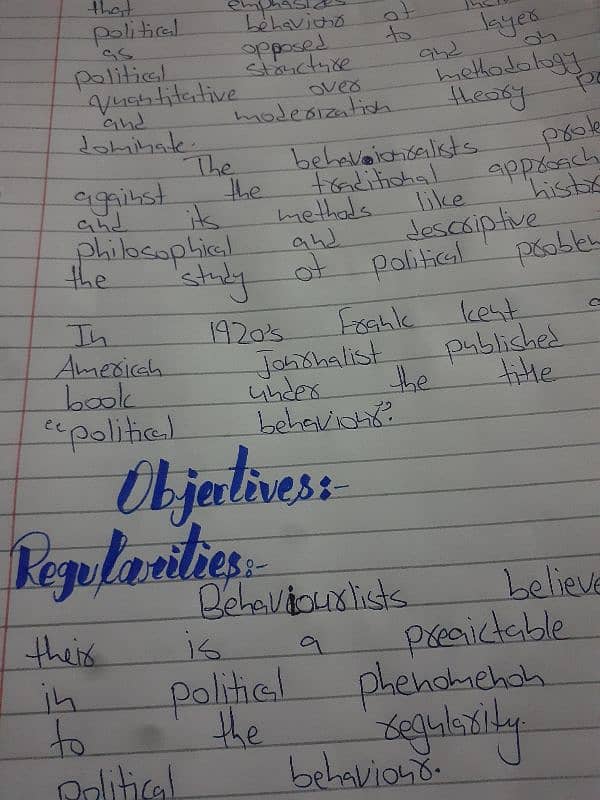 that emphasizes
political behaviour of
as opposed to layer
political structure and on
quantitative over methodology
and modernization theory
dominate.
The behaviouralists
against the traditional approach
and its methods like
philosophical and descriptive
the study of political
In 1920's Frank kent a
American Journalist published
book under the title
"political behaviour"
Objectives:-
Regularities:-
Behaviourlists believe
their is a predictable
in political phenomenon
to the regularity.
political behaviour.